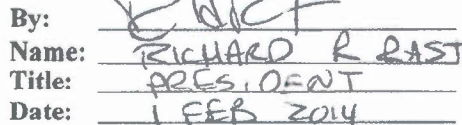 By:
Name: RICHARD R RAST
Title: PRESIDENT
Date: 1 FEB 2014